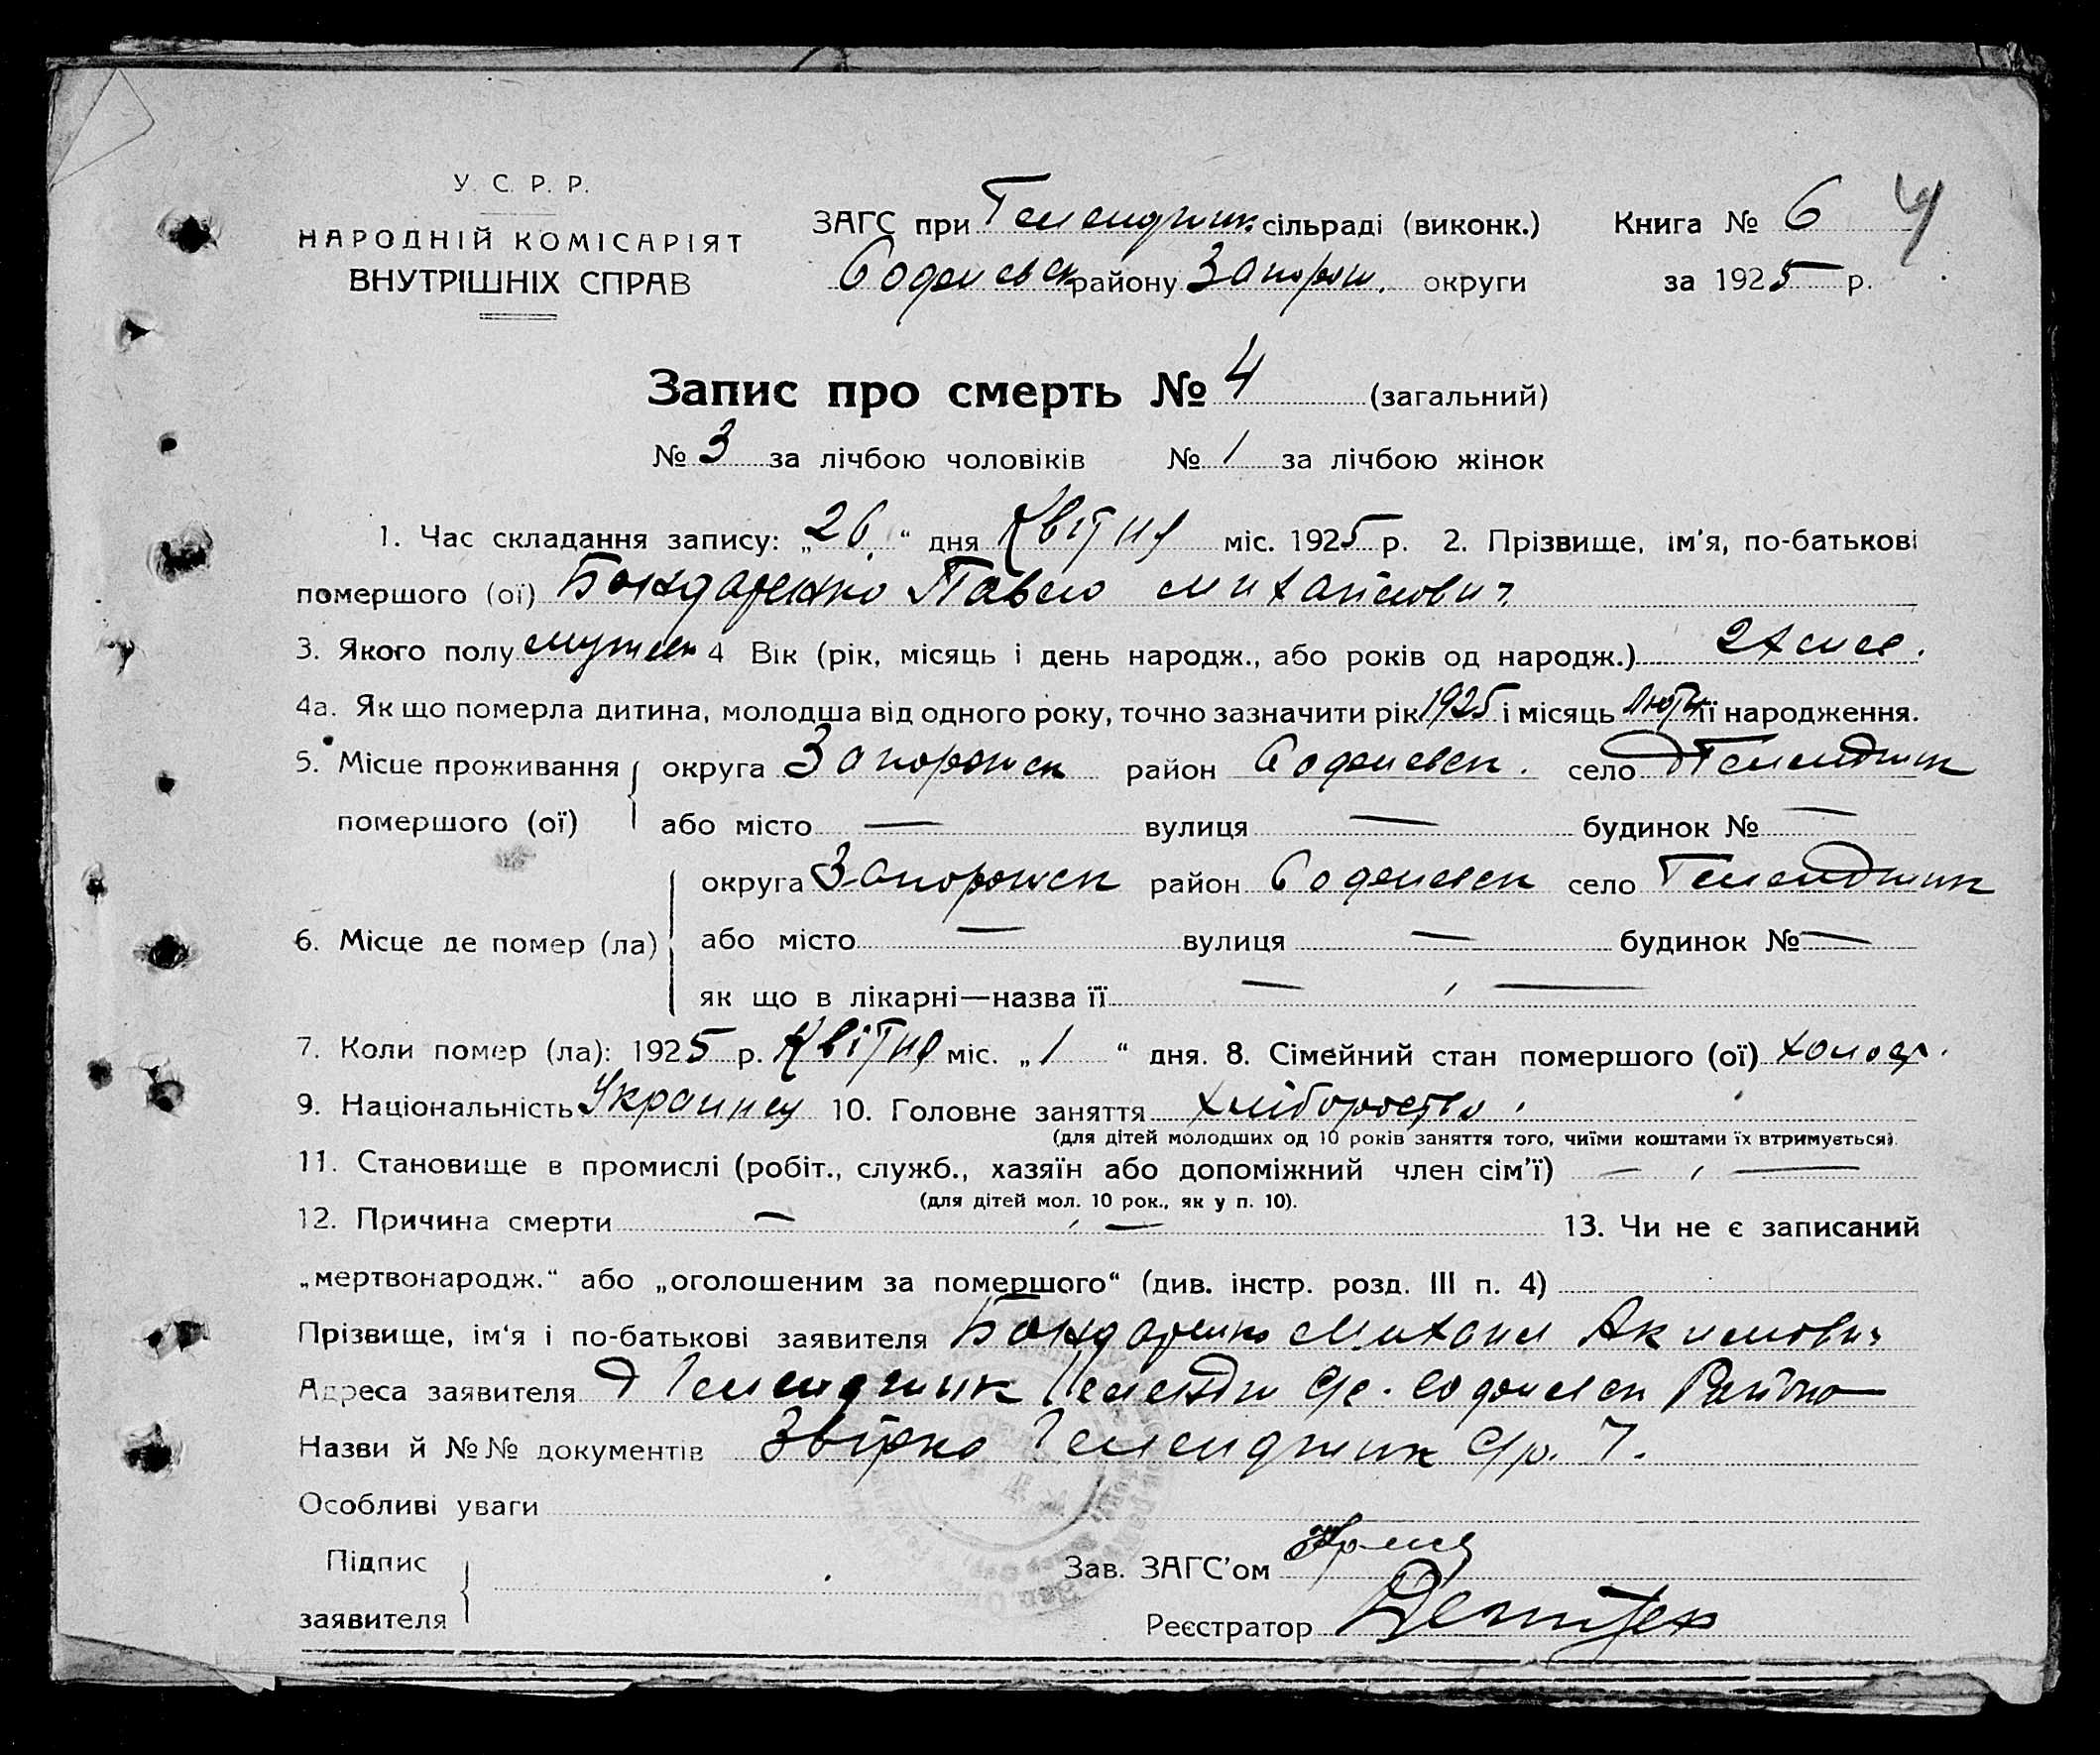 У. С. Р. Р.
НАРОДНІЙ КОМІСАРІЯТ
ВНУТРІШНІХ СПРАВ
ЗАГС при Геленджик сільраді (виконк.) Книга № 6 4
району Запорож. округи за 1925 р.
Запис про смерть № 4 (загальний)
№ 3 за лічбою чоловіків № 1 за лічбою жінок
1. Час складання запису: „26“ дня Квітня міс. 1925 р. 2. Прізвище, ім'я, по-батькові
помершого (ої) Бондаренко Павло Михайлович
3. Якого полу мужеск 4 Вік (рік, місяць і день народж., або років од народж.) 2х мес.
4а. Як що померла дитина, молодша від одного року, точно зазначити рік 1925 і місяць Лютий її народження.
5. Місце проживання помершого (ої) округа Запорожск район село Геленджик
або місто — вулиця — будинок № —
6. Місце де помер (ла) округа Запорожск район село Геленджик
або місто — вулиця — будинок № —
як що в лікарні—назва її — , —
7. Коли помер (ла): 1925 р. Квітня міс. „1“ дня. 8. Сімейний стан помершого (ої) холост.
9. Національність 10. Головне заняття хліборобство
(для дітей молодших од 10 років заняття того, чиїми коштами їх втримується).
11. Становище в промислі (робіт., служб., хазяїн або допоміжний член сім'ї) — , —
(для дітей мол. 10 рок., як у п. 10).
12. Причина смерти — , — 13. Чи не є записаний
„мертвонародж.“ або „оголошеним за помершого“ (див. інстр. розд. III п. 4)
Прізвище, ім'я і по-батькові заявителя Бондаренко Михаил Акимович
Адреса заявителя Геленджик Району
Назви й №№ документів Геленджик
Особливі уваги
Підпис
заявителя
Зав. ЗАГС'ом
Реєстратор